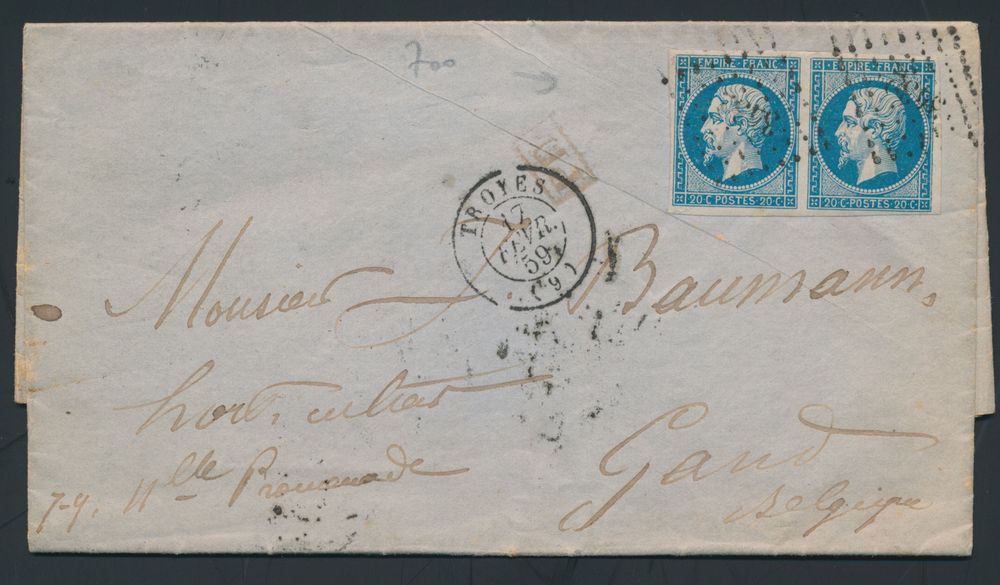 700
EMPIRE FRANC EMPIRE FRANC
20 C POSTES 20 C 20 C POSTES 20 C
TROYES
17
FEVR.
59
(9)
Monsieur J. Baumann,
horticulteur
7-9, Nlle Promenade
Gand
Belgique